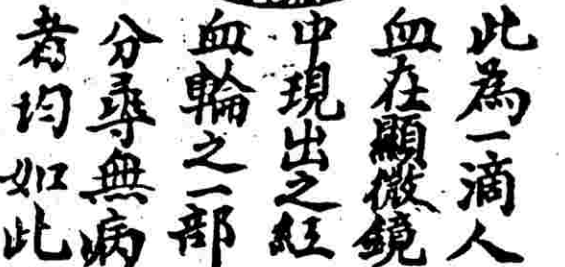 此為一滴人
血在顯微鏡
中現出之紅
血輪之一部
分尋無病
者均如此